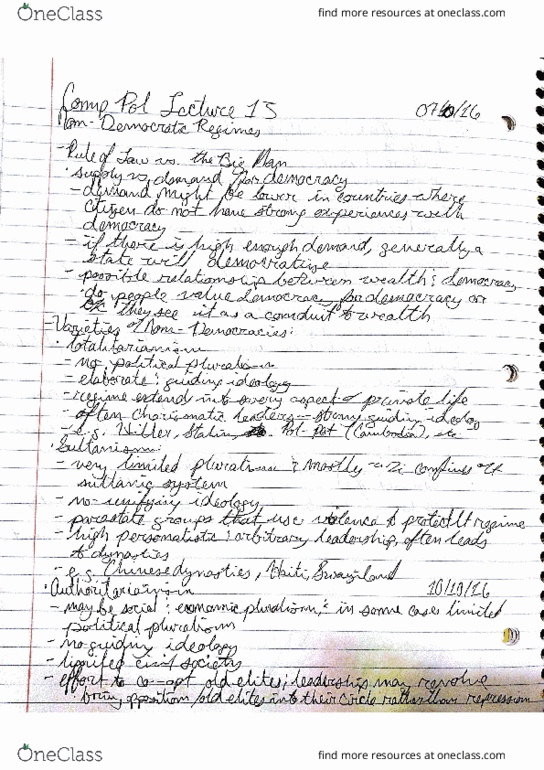 OneClass
find more resources at oneclass.com
Comp Pol Lecture 15
/16
Non-Democratic Regimes
- Rule of Law vs. the Big Man
· supply vs demand for democracy
- demand might be lower in countries where
citizen do not have strong experiences with
democracy
- if there is high enough demand, generally a
state will democratize
- possible relationship between wealth & democracy,
do people value democracy democracy or
they see it as a conduit to wealth
- Varieties of Non-Democracies:
· totalitarianism
- no political pluralism
- elaborate & guiding ideology
- regime extend into every aspect of private life
- often charismatic leaders - strong guiding ideology
- e.g. Hitler, Stalin, Pol-Pot (Cambodia), etc
· Sultanism:
- very limited pluralism & mostly in confines of
sultanic system
- no unifying ideology
- parastate groups that use violence to protect regime
- high personalistic & arbitrary leadership, often leads
to dynasties
- e.g. Chinese dynasties, Haiti, Swaziland
· Authoritarianism
10/19/16
- may be social & economic pluralism, & in some cases limited
political pluralism
- no guiding ideology
- limited civil society
- effort to co-opt old elites; leadership may revolve
· bring opposition/old elites into their circle rather than repression
OneClass
find more resources at oneclass.com